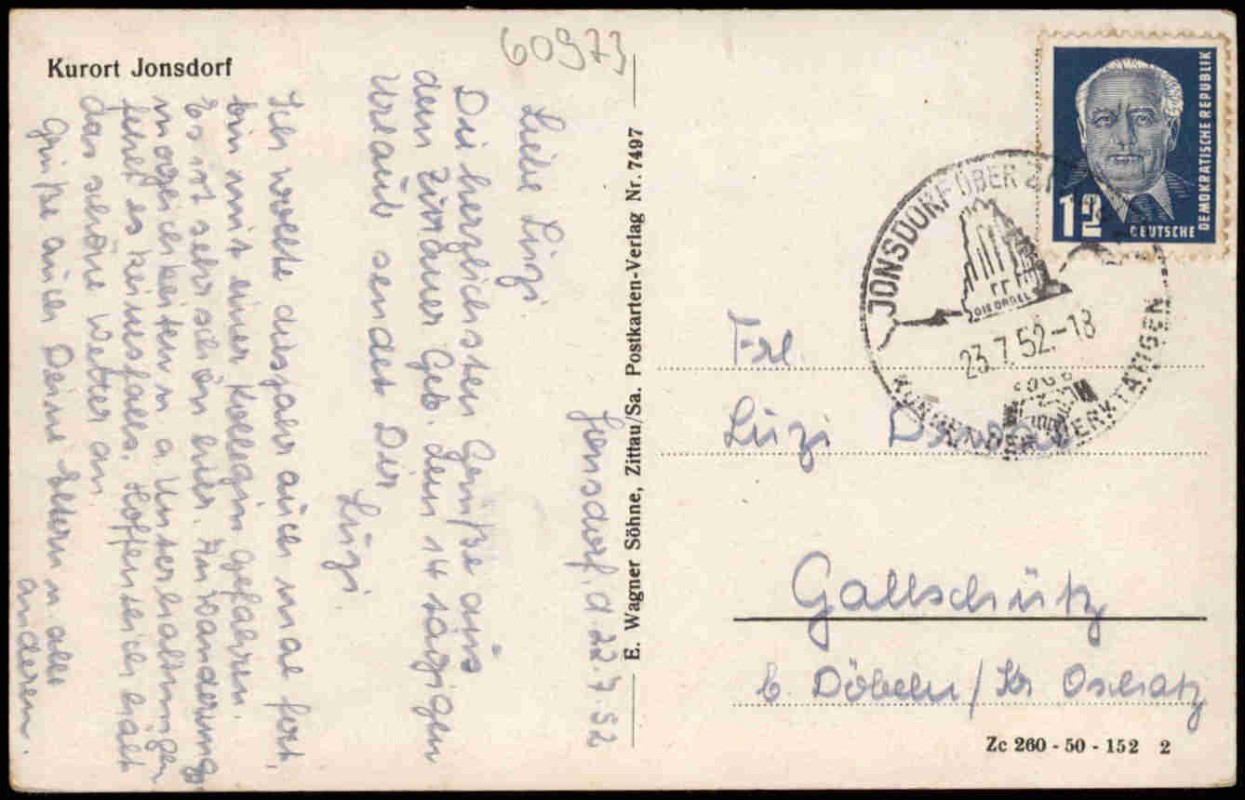 60973
Kurort Jonsdorf
Jonsdorf, d 22.7.52
Liebe Luzi
Die herzlichsten Grüße aus
dem Zittauer Geb. den 14 tägigen
Urlaub sendet Dir
Luzi.
Ich wollte diesjahr auch mal fort,
bin mit einer Kollegin gefahren.
Es ist sehr schön hier. An Wanderung
mögeichkeiten u a Unterhaltungen
fehlt es keinesfalls. Hoffentlich hält
das schöne Wetter an.
Grüße auch Deine Eltern u alle
anderen.
E. Wagner Söhne, Zittau/Sa. Postkarten-Verlag Nr. 7497
12
DEUTSCHE
DEMOKRATISCHE REPUBLIK
JONSDORF ÜBER
DIE ORGEL
23.7.52.-18
KURORT DER WERKTÄTIGEN
Frl
Luzi
Gallschütz
b. Döbeln/Kr Oschatz
Zc 260 - 50 - 152 2